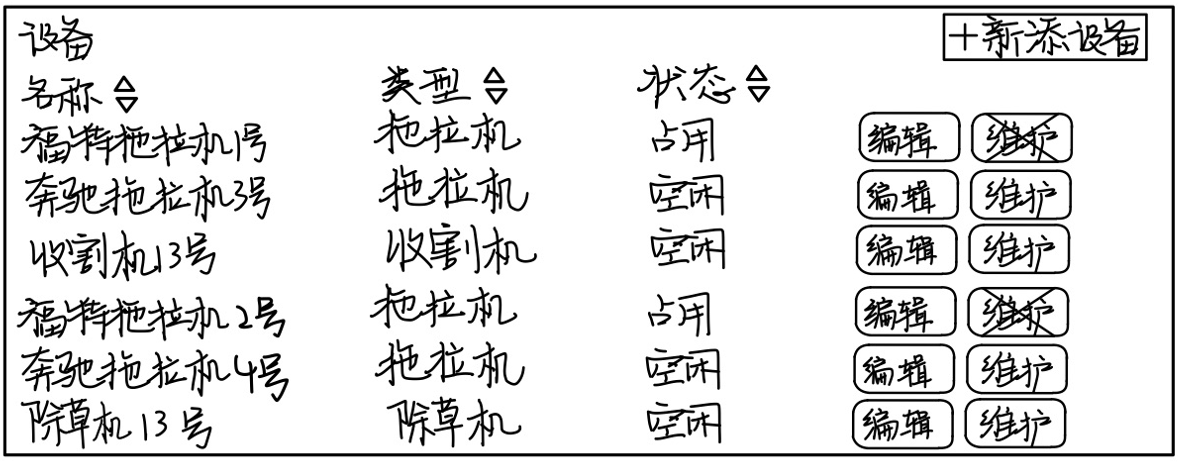 设备 +新添设备
名称 类型 状态
福特拖拉机1号 拖拉机 占用 编辑 维护
奔驰拖拉机3号 拖拉机 空闲 编辑 维护
收割机13号 收割机 空闲 编辑 维护
福特拖拉机2号 拖拉机 占用 编辑 维护
奔驰拖拉机4号 拖拉机 空闲 编辑 维护
除草机13号 除草机 空闲 编辑 维护